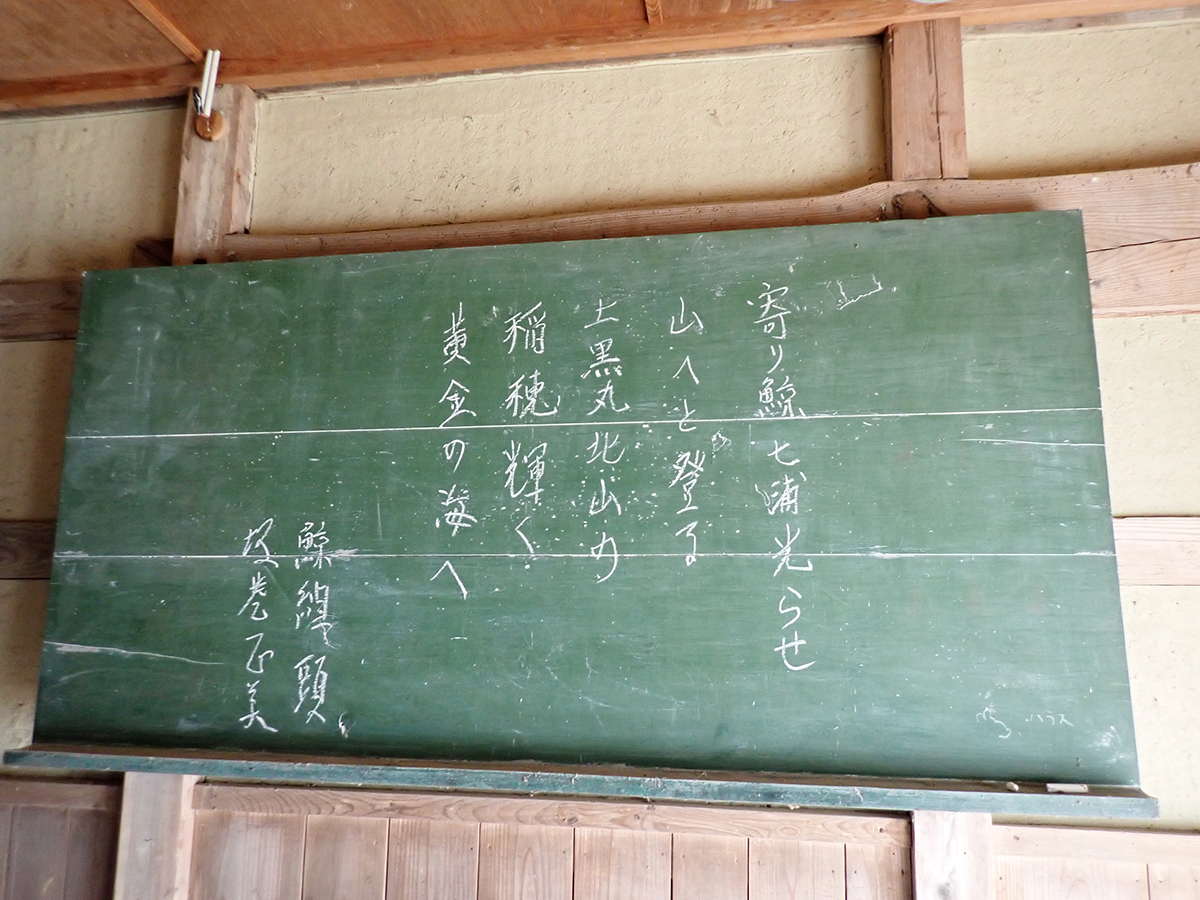 寄り鯨七浦光らせ
山へと登る
上黒丸北山の
稲穂輝く
黄金の海へ
鯨
坂巻正美
ハラス